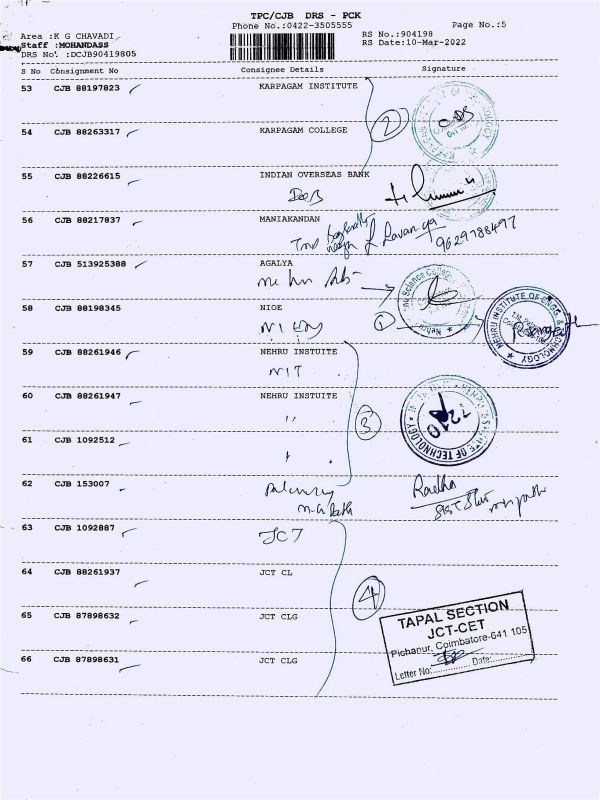 TPC/CJB DRS - PCK
Phone No.:0422-3505555
Page No.:5
Area :K G CHAVADI
Staff :MOHANDASS
DRS No. :DCJB90419805
RS No.:904198
RS Date:10-Mar-2022
S No Consignment No Consignee Details Signature
53 CJB 88197823 KARPAGAM INSTITUTE
2
54 CJB 88263317 KARPAGAM COLLEGE
55 CJB 88226615 INDIAN OVERSEAS BANK
56 CJB 88217837 MANIAKANDAN
Lavanya
9629788497
57 CJB 513925388 AGALYA
58 CJB 88198345 NIOE
1
NEHRU INSTITUTE OF ENGG. & TECHNOLOGY
59 CJB 88261946 NEHRU INSTUITE
NIT
60 CJB 88261947 NEHRU INSTUITE
"
3
61 CJB 1092512
OF TECHNOLOGY
62 CJB 153007
Radha
63 CJB 1092887
JCT
64 CJB 88261937 JCT CL
4
65 CJB 87898632 JCT CLG
66 CJB 87898631 JCT CLG
TAPAL SECTION
JCT-CET
Pichanur, Coimbatore-641 105
Letter No:............ Date:............